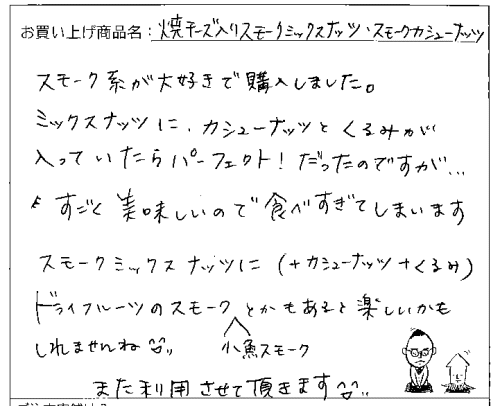 お買い上げ商品名:焼チーズ入りスモークミックスナッツ・スモークカシューナッツ
スモーク系が大好きで購入しました。
ミックスナッツに、カシューナッツとくるみが
入っていたらパーフェクト!だったのですが…
すごく美味しいので食べすぎてしまいます
スモークミックスナッツに(+カシューナッツ+くるみ)
ドライフルーツのスモークとかもあると楽しいかも
しれませんね
小魚スモーク
また利用させて頂きます